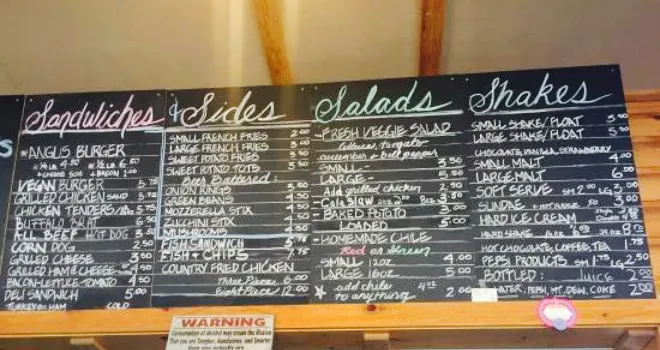 Sandwiches
*ANGUS BURGER
1/4 lb 4.50 1/2 lb 6.50
+CHEESE 50¢ +BACON 1.00
VEGAN BURGER 5.75
GRILLED CHICKEN SAND 5.75
CHICKEN TENDERS
BUFFALO
ALL BEEF HOT DOG 3.50
CORN DOG 2.50
GRILLED CHEESE 3.50
GRILLED HAM & CHEESE 4.50
BACON-LETTUCE-TOMATO 4.50
DELI SANDWICH 5.00
TURKEY or HAM COLD
& Sides
SMALL FRENCH FRIES 2.00
LARGE FRENCH FRIES 3.50
SWEET POTATO FRIES 3.50
SWEET POTATO TOTS 3.50
Beer Battered:
ONION RINGS 4.50
GREEN BEANS 4.50
MOZZERELLA STIX
ZUCCHINI STIX
MUSHROOMS
FISH SANDWICH 5.75
FISH & CHIPS 7.75
COUNTRY FRIED CHICKEN
Three Piece 6.00
Eight Piece 12.00
Salads
-FRESH VEGGIE SALAD
lettuce, tomato
cucumber & bell peppers
SMALL 3.50
LARGE 5.50
Add grilled chicken 2.50
-Cole Slaw 2.00 3.50
-BAKED POTATO 3.00
LOADED 5.00
-HOMEMADE CHILE
Red or Green
SMALL 12oz 4.00
LARGE 16oz 5.00
* add chile 4oz 2.00
to anything
Shakes
SMALL SHAKE/FLOAT 3.50
LARGE SHAKE/FLOAT 5.50
CHOCOLATE, VANILLA, STRAWBERRY
SMALL MALT 4.00
LARGE MALT 6.00
SOFT SERVE SM 2.00 LG 3.00
SUNDAE
HARD ICE CREAM
HARD SHAKE
HOT CHOCOLATE, COFFEE, TEA 1.75
PEPSI PRODUCTS SM 1.75 LG 2.50
BOTTLED: JUICE 2.00
WATER, PEPSI, MT. DEW, COKE 2.00
WARNING
Consumption of Alcohol may create the illusion
That you are Tougher, Handsomer, and Smarter
than you actually are